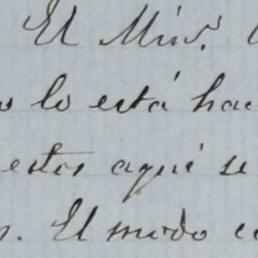 El Min.º
lo está hac
estos aquí se
El modo